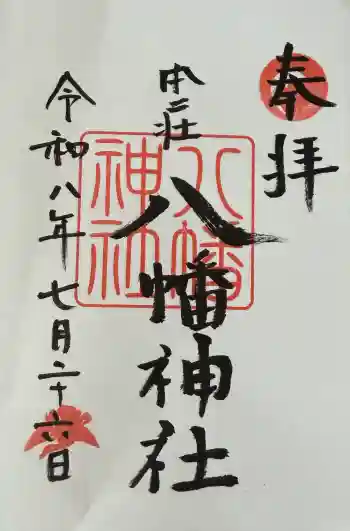 奉拝
本二荘
八幡神社
八幡
神社
令和八年七月二十六日